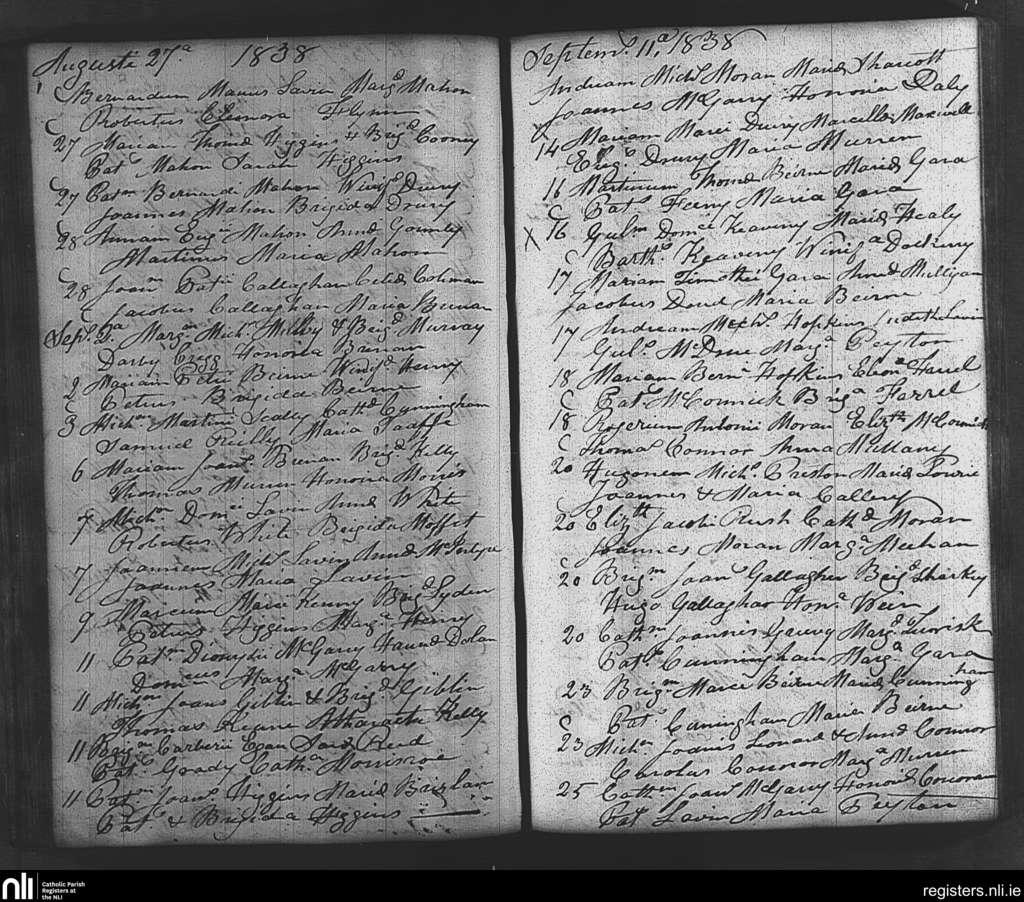 Augusti 27a 1838
Bernardum Marcus Lavin Marga Mahon
C Robertus Eleonora Flynn
27 Mariam Thomæ Higgins & Brigd Cooney
Patt Mahon Sarah Higgins
27 Patm Bernardi Mahon Winifd Drury
Joannes Mahon Brigida Drury
28 Annam Eugn Mahon Annæ Gormley
Martinus Maria Mahon
28 Joanm Patii Callaghan Coleman
C Jacobus Callaghan Maria Brenan
Sept. Margm Michl & Brigd Murray
Darby Cregg Honoria Brenan
2 Mariam Petri Beirne Winifd Henry
Petrus Brigida Beirne
3 Michm Martini Scally Cathd Cunningham
Samuel Reilly Maria Taaffe
6 Mariam Joans Brenan Brigd Kelly
Thomas Murren Honoria Morris
7 Michm Domci Lavin Annæ White
Robertus White Brigida Moffet
7 Joannem Michl Lavin Annæ
Joannes Maria Lavin
9 Marcum Marci Kenny Brigd Lyden
Petrus Higgins Marga Henry
11 Patm Dionysii McGarry Dolan
Marga McGarry
11 Michm Joans Giblin & Brigd Giblin
Thomas Keegane Atharacta Kelly
11 Brigm Egan Reid
Patt Grady Catha Monisroe
11 Patm Joans Higgins Mariæ
Patt & Brigida Higgins
Septemr 11a 1838
Andream Michl Moran Mariæ Sharcott
Joannes McGarry Honoria Daly
14 Mariam Marci Drury Marcella Maxwell
Drury Maria Murren
16 Martinum Thomæ Beirne Mariæ Gara
C Patt Feeny Maria Gara
X 16 Gulm Domci Keaveny Mariæ Healy
C Barthw Keaveny Winifa Dockerry
17 Mariam Timothei Gara Annæ Mulligan
Jacobus Doud Maria Beirne
17 Andream Michl Hopkins Judith Lavin
Gull McDrue Marga Peyton
18 Mariam Bernd Hopkins Farrel
C Patt McCormick Briga Farrel
18 Rogerum Antonii Moran Elizth McCormick
C Thomas Connor Anna Mullany
20 Hugonem Michl Creston Mariæ Lowrie
Joannes & Maria Callery
20 Elizth Jacobi Rush Cathd Moran
Joannes Moran Marga Meehan
20 Brigm Joans Gallagher Brigd Sharkey
Hugo Gallagher Hona Weir
20 Cathm Joannis Marga
Patt Cunningham Marga Gara
23 Brigm Marci Beirne Mariæ Cunningham
C Patt Cuningham Maria Beirne
23 Michm Joanis Leonard & Annæ Connor
Carolus Connor Marga Murren
25 Cathm Joans McGarry Honoria Corcoran
Patt Lavin Maria Peyton
nli
Catholic Parish
Registers at
the NLI
registers.nli.ie